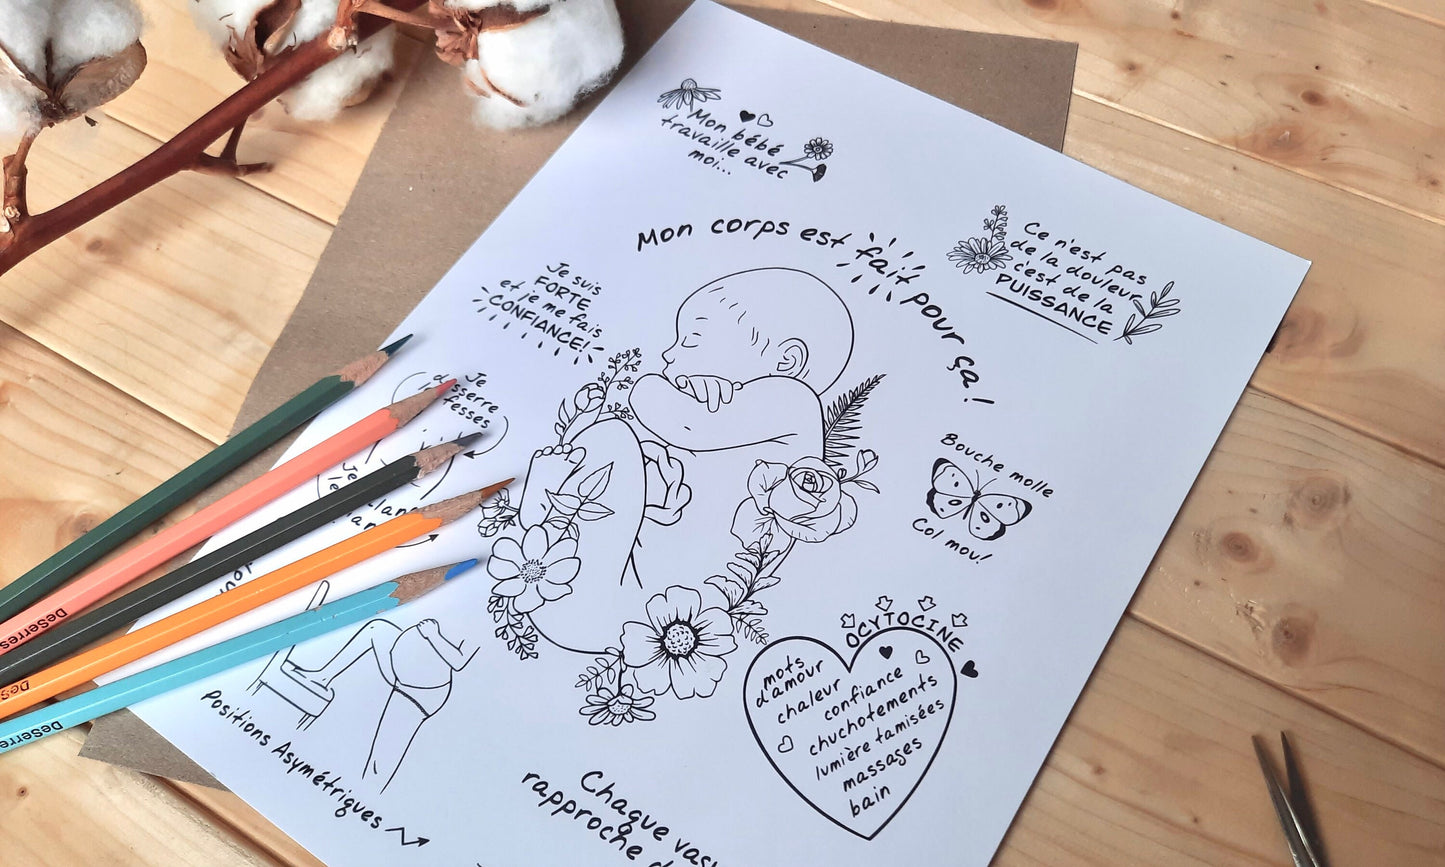 Mon bébé
travaille avec
moi...
Mon corps est fait pour ça!
Ce n'est pas
de la douleur
c'est de la
PUISSANCE
Je suis
FORTE
et je me fais
CONFIANCE!
Je
desserre
fesses
Je
Bouche molle
Col mou!
OCYTOCINE
mots
d'amour
chaleur
confiance
chuchotements
lumière tamisées
massages
bain
Positions Asymétriques
Chaque
rapproche
DeSerres
DeSerres
DeSerres